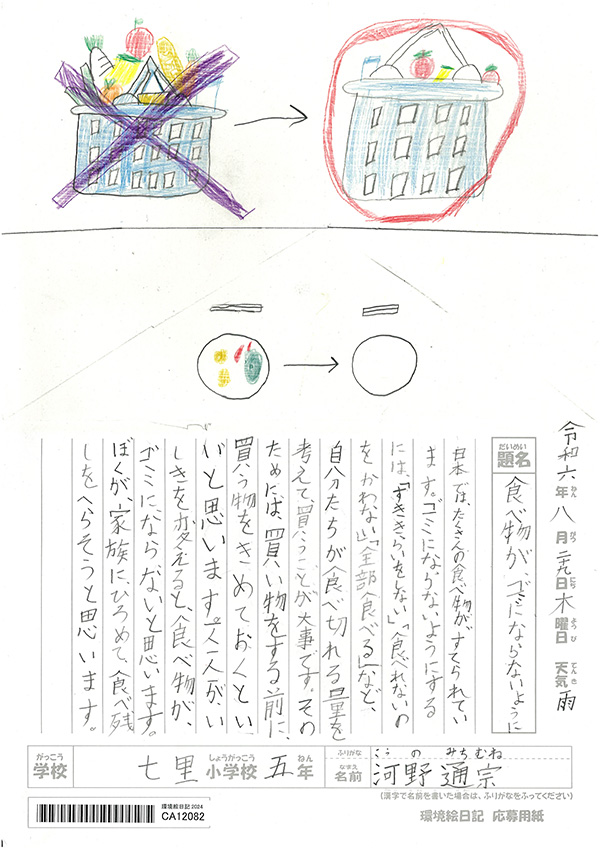 令和六年八月二九日木曜日 天気雨
ねん がつ にち ようび てんき
だいめい
題名 食べ物が、ゴミにならないように
日本では、たくさんの食べ物がすてられてい
ます。ゴミにならないようにする
には、「すききらいをしない」「食べれないの
をかわない」「全部食べる」など、
自分たちが食べ切れる量を
考えて、買うことが大事です。その
ためには、買い物をする前に、
買う物をきめておくとい
いと思います。一人一人が、い
しきを変えると、食べ物が、
ゴミにならないと思います。
ぼくが、家族に、ひろめて、食べ残
しをへらそうと思います。
がっこう しょうがっこう ねん
学校 七里小学校 五年
ふりがな こうの みちむね
なまえ
名前 河野 通宗
(漢字で名前を書いた場合は、ふりがなをふってください)
環境絵日記2024
CA12082
環境絵日記 応募用紙